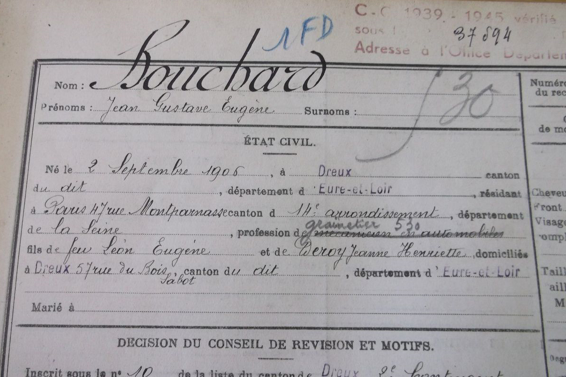 1FD
C. C 1939 - 1945 vérifié
sous 37894
Adresse à l'Office Départem
Nom : Bouchard
Prénoms : Jean Gustave Eugène Surnoms :
530
Numéro
du rec
de ma
ÉTAT CIVIL.
Né le 2 Septembre 1906, à Dreux canton
du dit, département d'Eure-et-Loir, résidant
à Paris 47 rue Montparnasse canton d 14e arrondissement, département
de la Seine, profession de grainetier 530 mécanicien en automobiles
fils de feu Léon Eugène et de Deroy Jeanne Henriette, domiciliés
à Dreux 57 rue du Bois Sabot, canton du dit, département d'Eure-et-Loir
Marié à
Cheveu
Front
Visage
Taill
DÉCISION DU CONSEIL DE REVISION ET MOTIFS.
Inscrit sous le n° 10 de la liste du canton de Dreux 2e Contingent